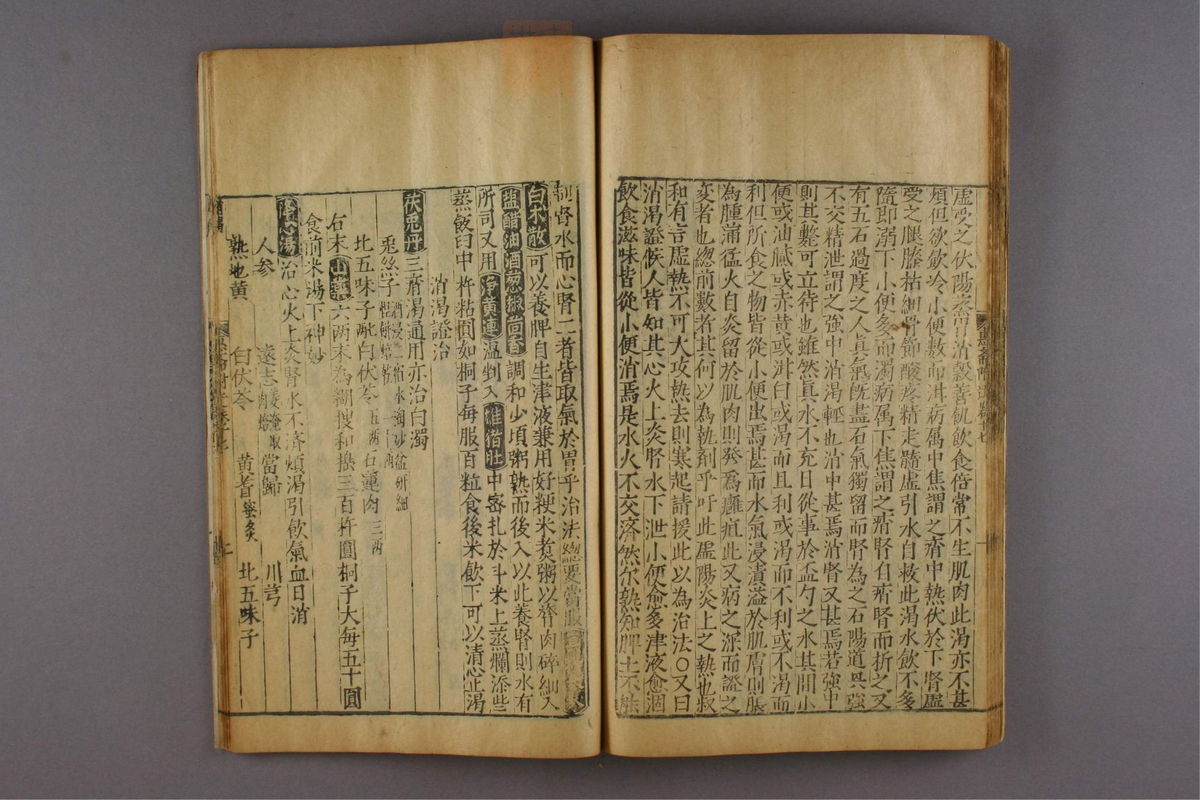 虛受之伏陽蒸胃消穀善飢飲食倍常不生肌肉此渴亦不甚
煩但欲飲冷小便數而病属中焦謂之痟中熱伏於下腎虛
受之腿膝枯細骨節酸疼精走髓虛引水自救此渴水飲不多
隨即溺下小便多而濁病属下焦謂之痟腎自痟腎而折之又
有五石過度之人真氣既盡石氣獨留而腎為之石陽道興強
不交精泄謂之強中消渴輕也消中甚焉消腎又甚焉若強中
則其斃可立待也雖然真水不充日從事於盃勺之水其間小
便或油膩或赤黄或泔白或渴而且利或渴而不利或不渴而
利但所食之物皆從小便出焉甚而水氣浸漬溢於肌膚則脹
為腫滿猛火自炎留於肌肉則發為癰疽此又病之深而證之
変者也總前數者其何以為執剂乎吁此虛陽炎上之熱也叔
和有言虛熱不可大攻熱去則寒起請援此以為治法〇又曰
消渴證候人皆知其心火上炎腎水下泄小便愈多津液愈涸
飲食滋味皆從小便消焉是水火不交濟然尔孰知脾土不能
制腎水而心腎二者皆取氣於胃乎治法總要當服
白术散可以養脾自生津液兼用好粳米煑粥以膂肉碎細入
塩醋油酒葱椒茴香調和少頃粥熟而後入以此養腎則水有
所司又用淨黄連温剉入雄猪肚中密扎於斗米上蒸爛添些
蒸飯臼中杵粘圓如桐子每服百粒食後米飲下可以清心止渴
消渴證治
茯兎丹三痟渴通用亦治白濁
兎絲子
北五味子 白伏苓五两 石蓮肉三两
右末山藥六两末為糊搜和搗三百杵圓桐子大每五十圓
食前米湯下神妙
治心火上炎腎水不濟煩渴引飲氣血日消
人参 遠志 當歸 川芎
熟地黄 白伏苓 黄耆蜜炙 北五味子